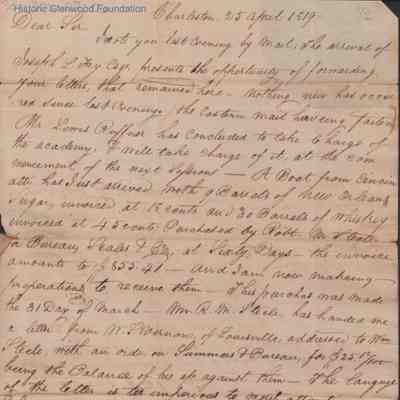 Historic Glenwood Foundation
Charleston. 25 April 1819
Dear Sir
I wrote you last evening by mail, the arrival of
Joseph Lovey Esq. presents the opportunity of forwarding
your letters, that remained here. Nothing new has occur
red since last evening, the Eastern mail having failed
Mr Lewis Ruffner has concluded to take charge of
the academy, & will take charge of it, at the com
mencement of the next session — A Boat from Cincin
atti has just arrived with 9 Barrels of New Orleans
sugar, invoiced at 15 cents and 30 Barrels of Whiskey
invoiced at 45 cents Purchased by Robt. M Steele
for Bureau Scales & Co, at Sixty Days — the invoice
amounts to $855.41 — and I am now making
preparations to receive them — This purchase was made
the 31 Day of March — Mr. R. M. Steele, has handed me
a letter from W. T. Vernon, of Louisville, addressed to Wm
Steele, with an order on Summers & Bureau, for $25
being the Balance of his act against them — The language
of the letter is too imperious to